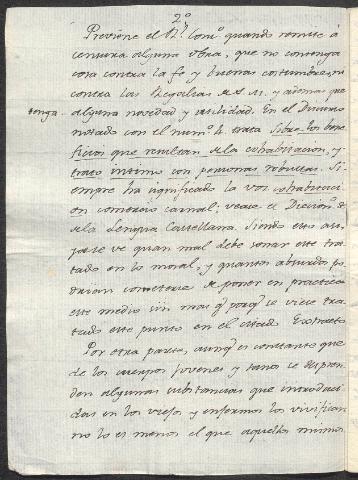 2º
Previene el Rl. Consº. quando remite á
censura alguna obra, que no contenga
cosa contra la fe y buenas costumbres, ni
contra las Regalias de S. M. y ademas que
tenga - alguna novedad y utilidad. En el Discurso
notado con el num.º 4. trata sobre los bene
ficios que resultan de la cohabitacion, y
trato intimo con personas robustas. Si-
empre ha significado la voz cohabitaci
on comercio carnal; vease el Diccion.º de
de la Lengua Castellana. Siendo esto asi,
ya se ve quan mal debe sonar este tra-
tado en lo moral, y quantos absurdos po
drian cometerse de poner en practica
este medio sin mas q.e porq.e se viese tra
tado este punto en el citado Extracto
Por otra parte, aunq.e es constante que
de los cuerpos jovenes y sanos se despren
den algunas substancias que introduci
das en los viejos y enfermos los vivifican
no lo es menos el que aquellos mismos